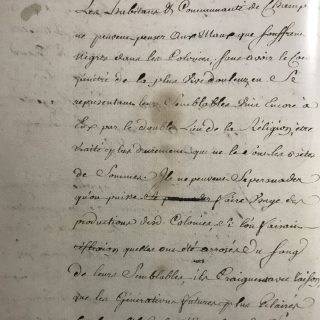 Les habitans & Communauté de Champ
ne peuvent penser aux Maux que souffrent
Négres dans les Colonies, sans avoir le Cœur
pénétré de la plus Vive douleur, en Se
representans leurs Semblables Unis Encore à
Eux par le double Lien de la Religion, être
traité plus durement que ne le sont les bêtes
de Sommes. Ils ne peuvent Se persuader
qu'on puisse faire Usage des
productions desd. Colonies Si l'on faisait
réflexion quelles ont été arrosées du Sang
de leurs Semblables ils Craignent avec raison
que les Générations futures plus Eclairées